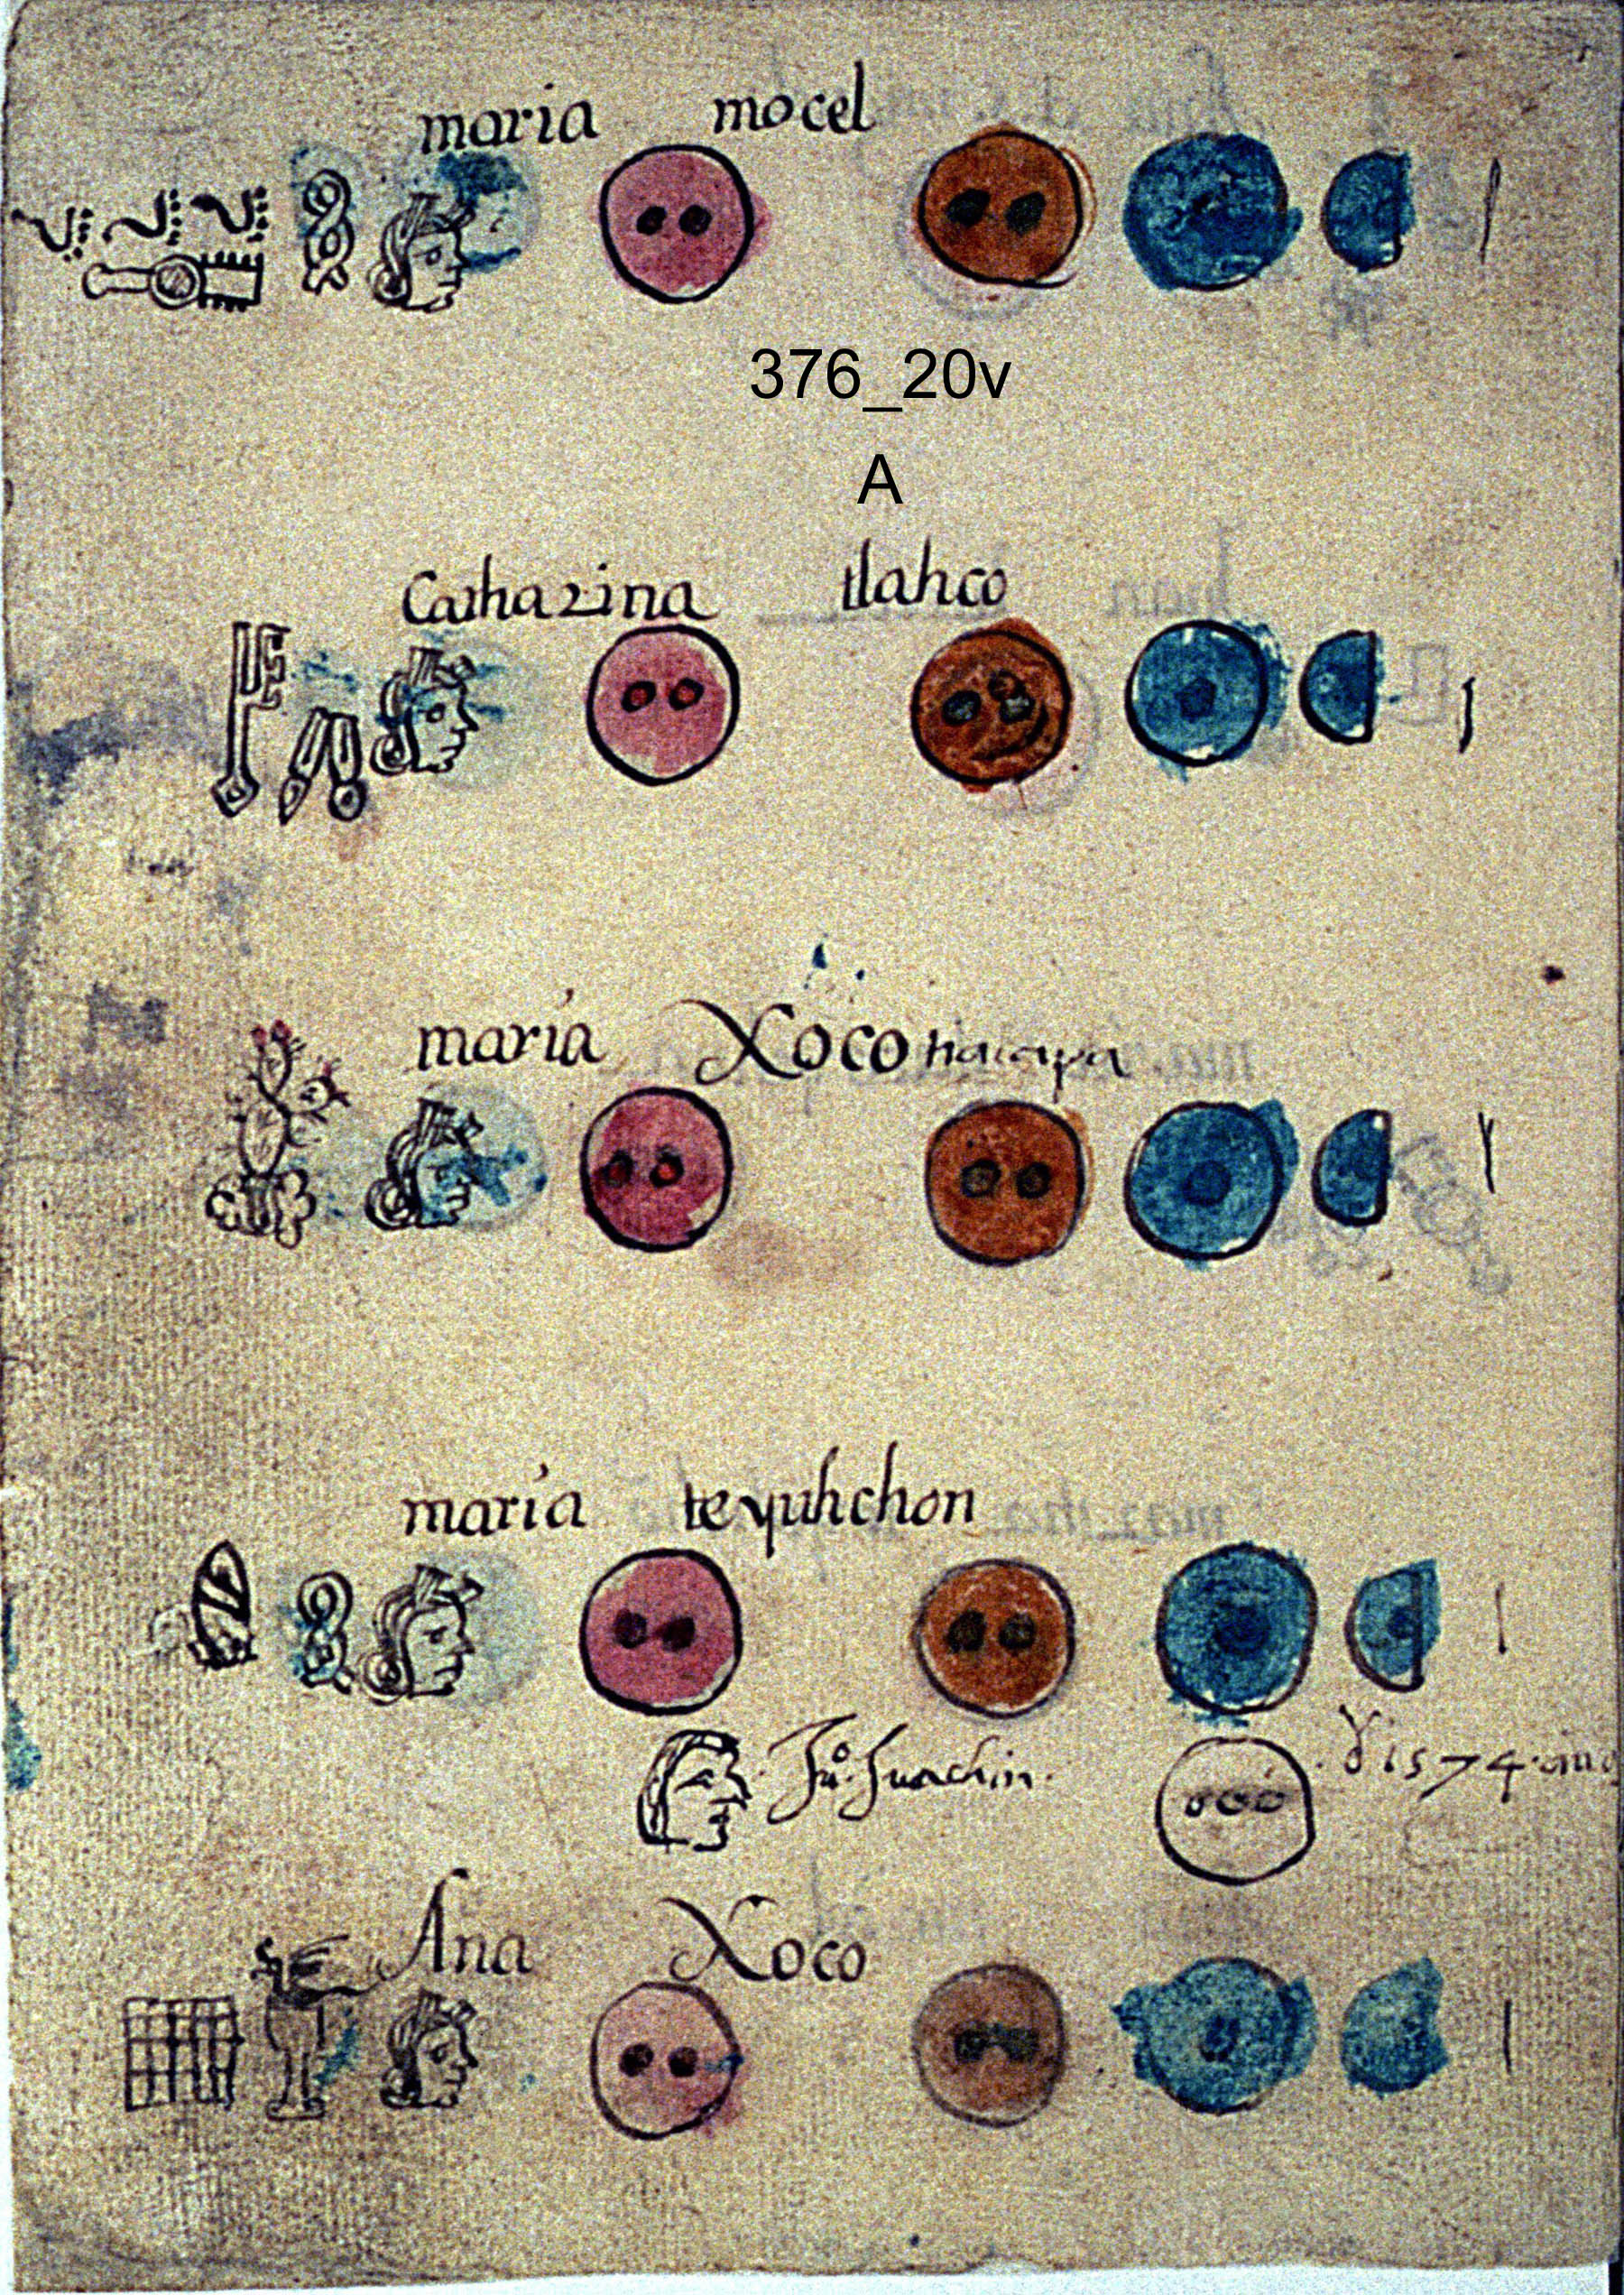 maria mocel
376_20v
A
Catharina tlahco
maria Xoco
maria teyuhchon
Juº Juachin
1574
Ana Xoco